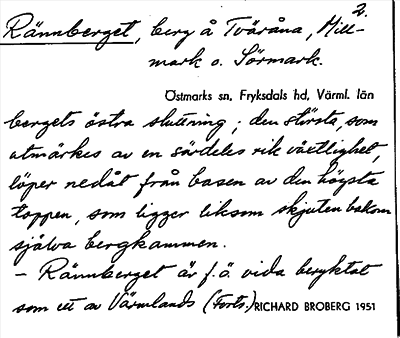 2.
Rännberget, berg å Tväråna, Mill-
mark o. Sörmark.
Östmarks sn, Fryksdals hd, Värml. län
bergets östra sluttning; den största, som
utmärkes av en särdeles rik växtlighet,
löper nedåt från basen av den högsta
toppen, som ligger liksom skjuten bakom
själva bergkammen.
– Rännberget är f.ö. vida beryktat
som ett av Värmlands (Forts.) RICHARD BROBERG 1951